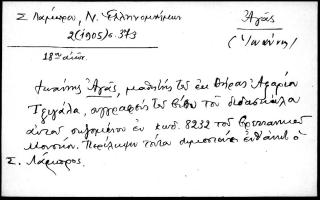 Σ. Λάμπρου, Ν. Ἑλληνομνήμων
2 (1905) σ. 373
Ἀγᾶς
(Ἰωάννης)
18ος αἰών.
Ἰωάννης Ἀγᾶς, μαθητὴς τοῦ ἐκ Θήρας Ἀζαρίου
Τζιγάλα, συγγραφεὺς τοῦ βίου τοῦ διδασκάλου
αὐτοῦ σῳζομένου ἐν κωδ. 8232 τοῦ Βρεττανικοῦ
Μουσείου. Περίληψιν τούτου δημοσιεύει ἐνθάδε ὁ
Σ. Λάμπρος.